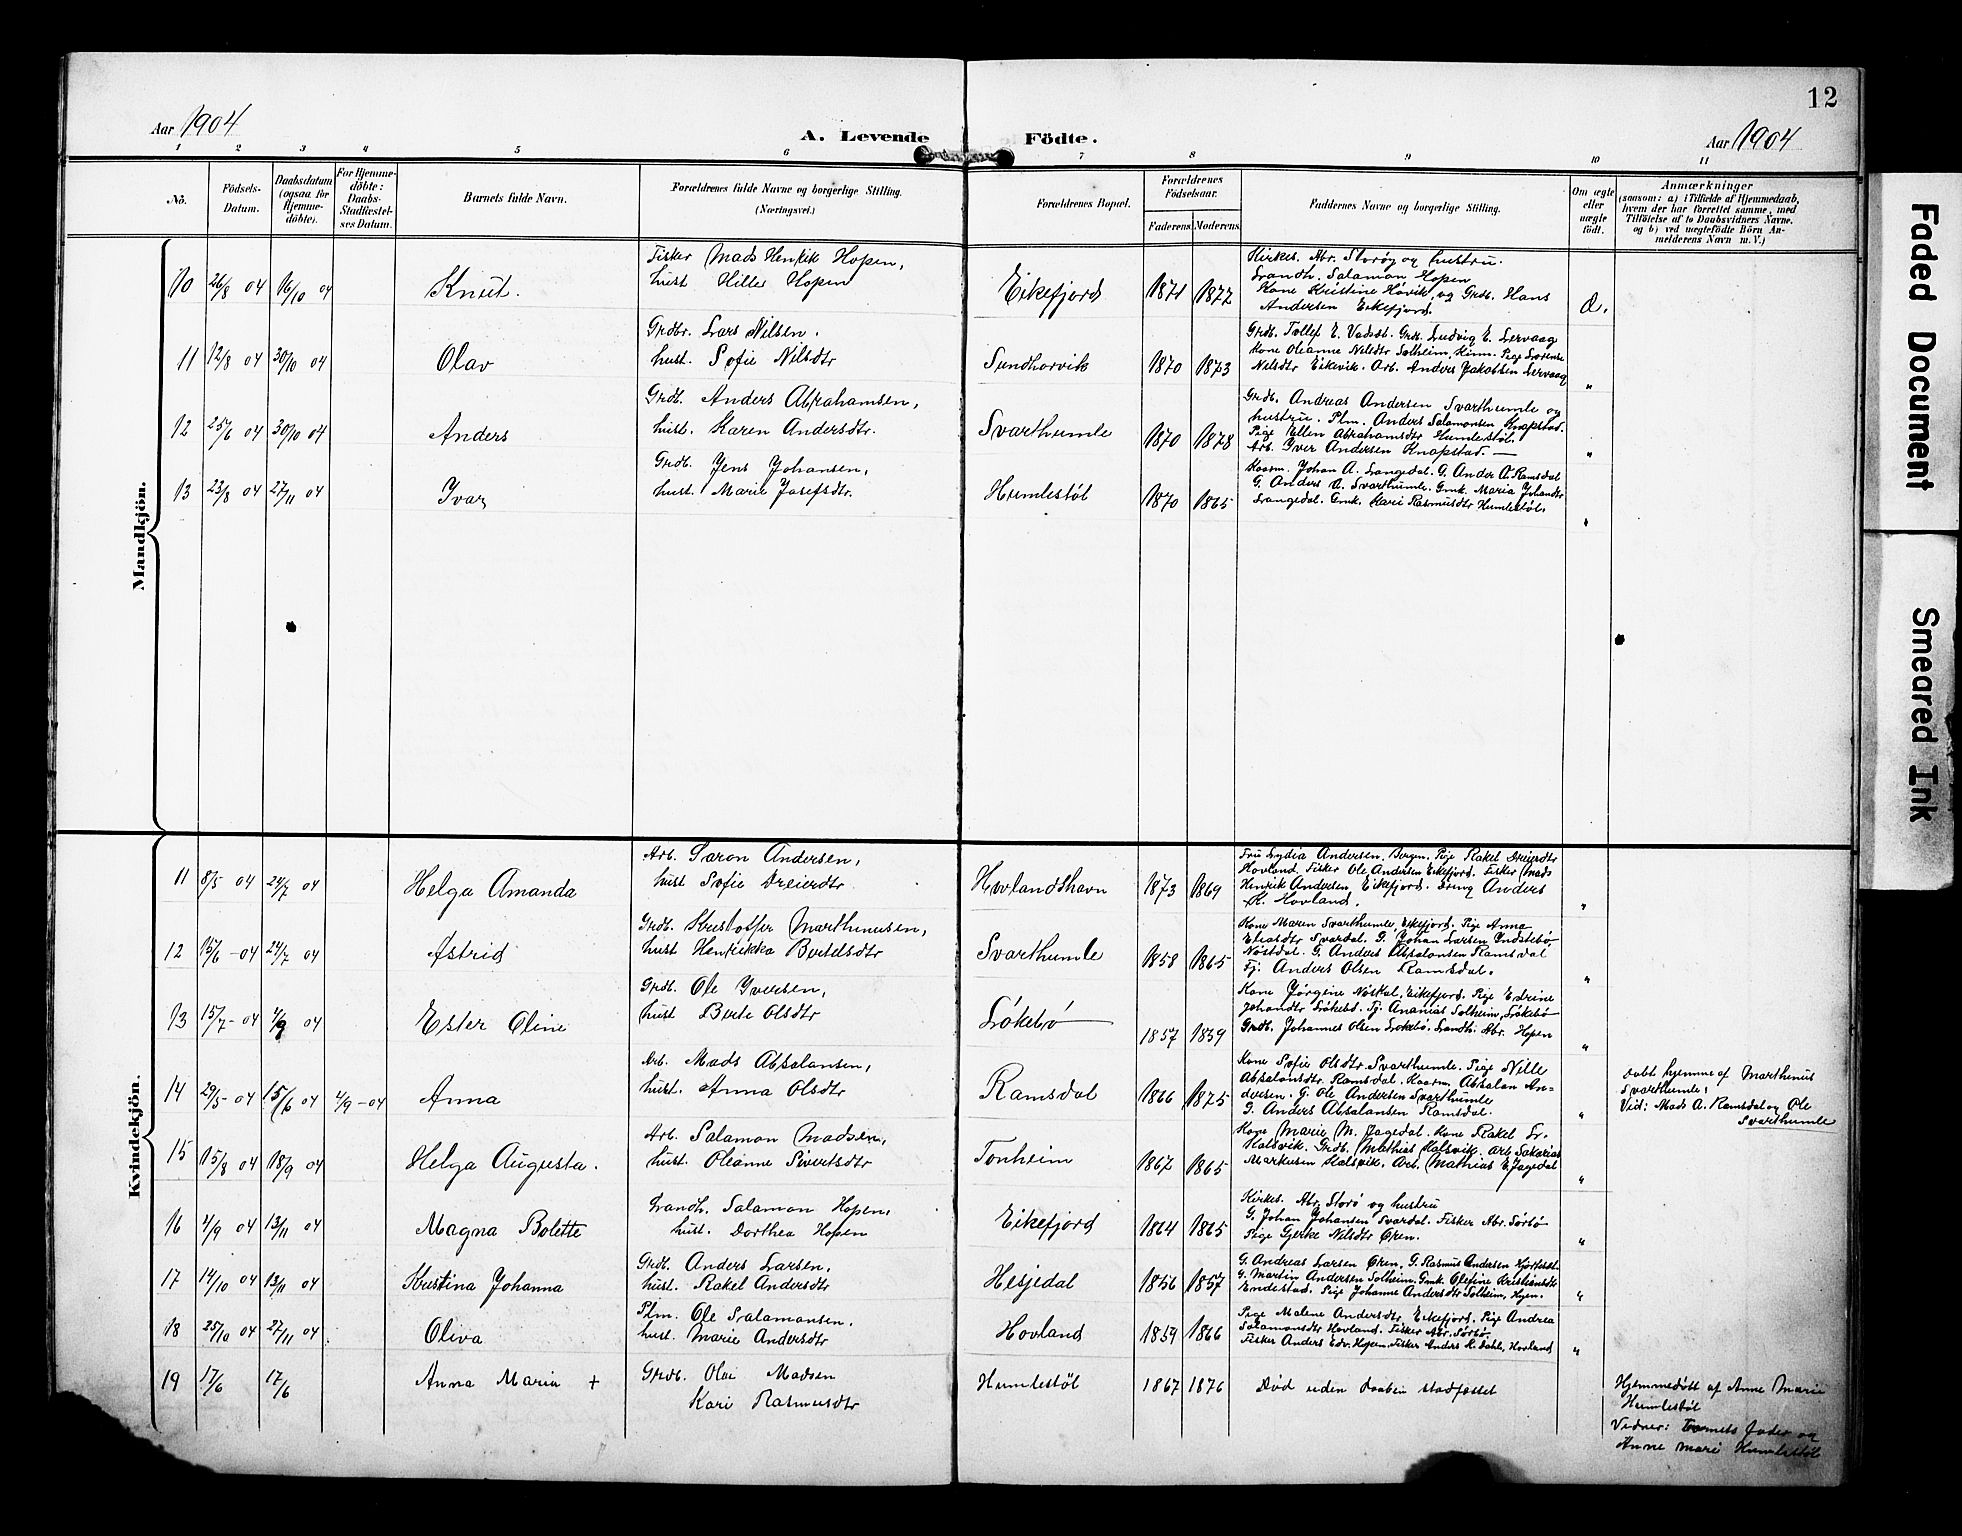 12
Aar 1904
A. Levende Födte.
Aar 1904
1 2 3 4 5 6 7 8 9 10 11
No.
Födsels-
Datum.
Daabsdatum
(ogsaa for
Hjemme-
döbte).
For Hjemme-
döbte:
Daabs-
Stadfæstel-
ses Datum.
Barnets fulde Navn.
Forældrenes fulde Navne og borgerlige Stilling.
(Næringsvei.)
Forældrenes Bopæl.
Forældrenes
Födselsaar.
Faderens Moderens
Faddernes Navne og borgerlige Stilling.
Om ægte
eller
uægte
födt.
Anmærkninger
(saasom: a) i Tilfælde af Hjemmedaab,
hvem der har forrettet samme, med
Tilföielse af to Daabsvidners Navne.
og b) ved uegtefödte Börn An-
melderens Navn m. V.)
Mandkjön.
10 26/8 04 16/10 04 Knut.
Fisker Mads Henrik Hopen,
hust Hille Hopen
Eikefjord 1871 1877
Kirkes. Abr. Storøy og hustru.
Landh. Salamon Hopen
Kone Kristine Høvik, og Grdb. Hans
Andersen Eikefjord.
11 12/8 04 30/10 04 Olav
Grdbr. Lars Nilsen.
hust. Sofie Nilsdtr
Sundhorvik 1870 1873
Grdb. Tollef E. Vadset. Grdb. Ludvig E. Lervaag
Kone Oleanne Nilsdtr Solheim, Kinn. Pige Lorense
Nilsdtr Eikevik. Arb. Anders Jakobsen Lervaag
"
12 25/6 04 30/10 04 Anders
Grdb. Anders Abrahamsen,
hust. Karen Andersdtr.
Svarthumle 1870 1878
Grdb. Andreas Andersen Svarthumle og
hustru. Plm. Anders Salamonsen Knapstad.
Pige Ellen Abrahamsdtr Humlestøl.
Arb. Iver Andersen Knapstad. —
"
13 23/8 04 27/11 04 Ivar
Grdb. Jens Johansen,
hust. Marie Josefsdtr.
Humlestøl 1870 1865
Kaarm. Johan A. Langedal. G. Anders A. Ramsdal
G. Anders A. Svarthumle. Gmk. Maria Johandtr
Langedal. Gmk. Kari Rasmusdtr Humlestøl.
"
Kvindekjön.
11 8/5 04 24/7 04 Helga Amanda
Arb. Saron Andersen,
hust Sofie Dreierdtr
Hovlandshavn 1873 1869
Fru Lydia Andersen, Bergen. Pige Rakel Dreierdtr
Hovland. Fisker Ole Andersen Eikefjord. Fisker Mads
Henrik Andersen, Eikefjord. Dreng Anders
K. Hovland.
"
12 15/6 - 04 24/7 04 Astrid
Grdb. Kristoffer Marthinusen,
hust Henrikka Bertelsdtr
Svarthumle 1858 1865
Kone Maren Svarthumle, Eikefjord. Pige Anna
Eliasdtr Svardal. G. Johan Larsen Indstebø
Nøstdal. G. Anders Absalonsen Ramsdal
Tj. Anders Olsen Ramsdal.
"
13 15/7 - 04 4/9 04 Ester Oline
Grdb. Ole Iversen,
hust Berte Olsdtr
Løkebø 1857 1859
Kone Jørgine Nøskal, Eikefjord. Pige Edrine
Johandtr Løkebø. Tj. Ananias Solheim, Løkebø
Grdb. Johannes Olsen Løkebø. Landh. Abr. Hopen
"
14 29/5 - 04 15/6 04 4/9 - 04 Anna
Arb. Mads Absalonsen,
hust. Anna Olsdtr
Ramsdal 1866 1875
Kone Sofie Olsdtr Svarthumle. Pige Nille
Absalonsdtr Ramsdal. Kaarm. Absalon An-
dersen. G. Ole Andersen Svarthumle
G. Anders Absalonsen Ramsdal.
"
Døbt hjemme af Marthinus
Svarthumle,
Vid: Mads A. Ramsdal og Ole
Svarthumle
15 15/8 04 18/9 04 Helga Augusta.
Arb. Salamon Madsen,
hust. Oleanne Sivertsdtr
Tonheim 1867 1865
Kone Marie M. Jagedal. Kone Rakel Lr.
Kalsvik. Grdb. Mathias Kalsvik. Arb. Sakarias
Markusen Kalsvik. Arb. Mathias E. Jagedal
"
16 4/9 04 13/11 04 Magna Bolette
Landh. Salamon Hopen,
hust. Dorthea Hopen
Eikefjord 1864 1865
Kirkes. Abr. Storø og hustru
G. Johan Johansen Svardal. Fisker Abr. Sørbø
Pige Gjerke Nilsdtr Øren.
"
17 14/10 04 13/11 04 Kristina Johanna
Grdb. Anders Larsen,
hust. Rakel Andersdtr
Hesjedal 1856 1857
G. Andreas Larsen Øren, G. Rasmus Andersen Hjorteset.
G. Martin Andersen Solheim. Gmk. Olefine Kristiansdtr
Endestad. Pige Johanne Andersdtr Solheim, Hyen.
"
18 25/10 04 27/11 04 Oliva
Plm. Ole Salamonsen,
hust. Marie Andersdtr
Hovland 1859 1866
Pige Malene Andersdtr Eikefjord. Pige Andrea
Salamonsdtr Hovland. Fisker Abr. Sørbø.
Fisker Anders Edv. Hopen. Fisker Anders K. Dahle, Hovland
"
19 17/6 17/6 Anna Maria +
Grdb. Olai Madsen
Kari Rasmusdtr
Humlestøl 1867 1876
Død uden Daaben stadfæstet
Hjemmedøbt af Anne Marie
Humlestøl
Vidner: Barnets fader og
Anne Marie Humlestøl
Faded Document
Smeared Ink